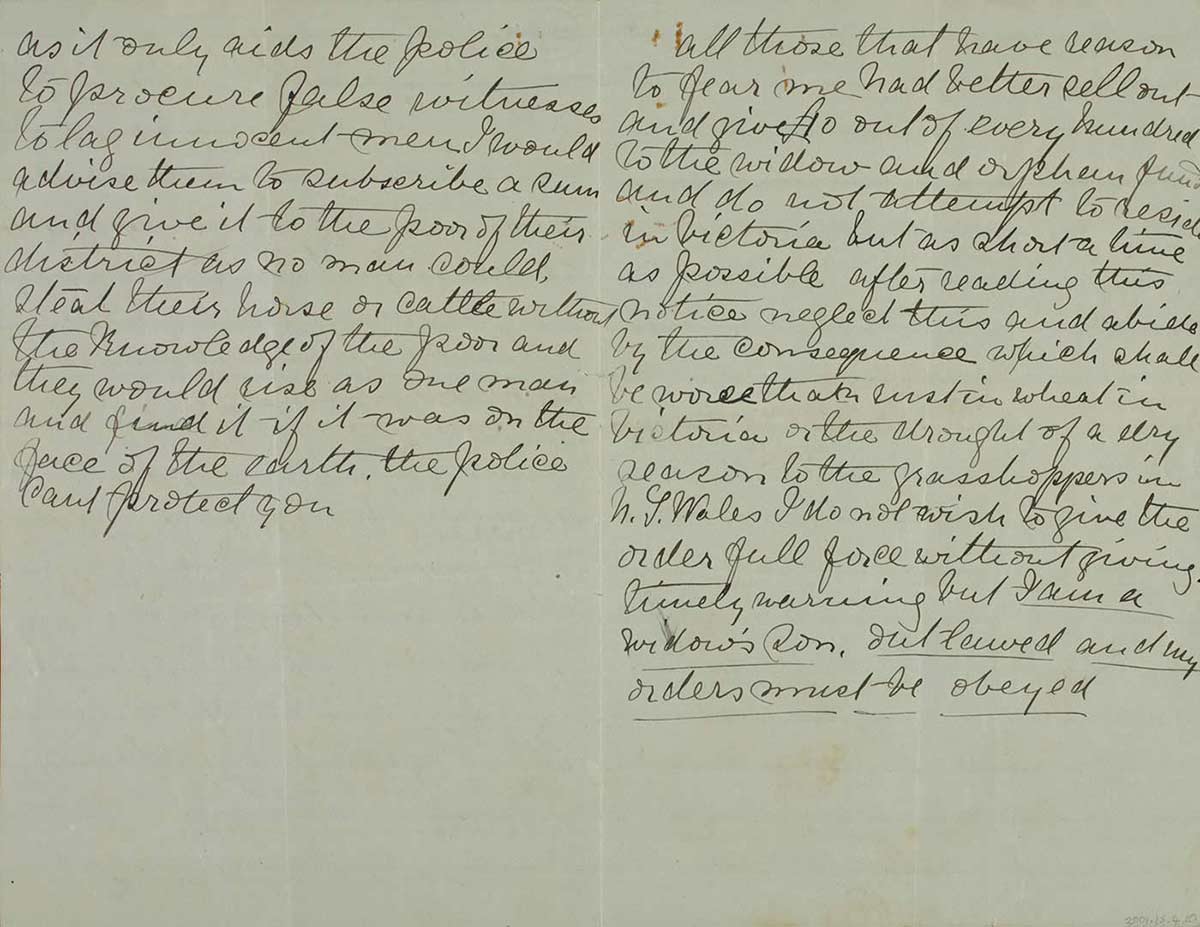 as it only aids the police
to procure false witnesses
to lag innocent men I would
advise them to subscribe a sum
and give it to the poor of their
district as no man could
steal their horse or cattle without
the knowledge of the poor and
they would rise as one man
and find it if it was on the
face of the earth. the police
cant protect you
all those that have reason
to fear me had better sell out
and give £10 out of every hundred
to the widow and orphan fund
and do not attempt to reside
in Victoria but as short a time
as possible after reading this
notice neglect this and abide
by the consequence which shall
be worse than rust in wheat in
Victoria or the drought of a dry
season to the grasshoppers in
N.S.Wales I do not wish to give the
order full force without giving
timely warning but I am a
widow's son, outlawed and my
orders must be obeyed